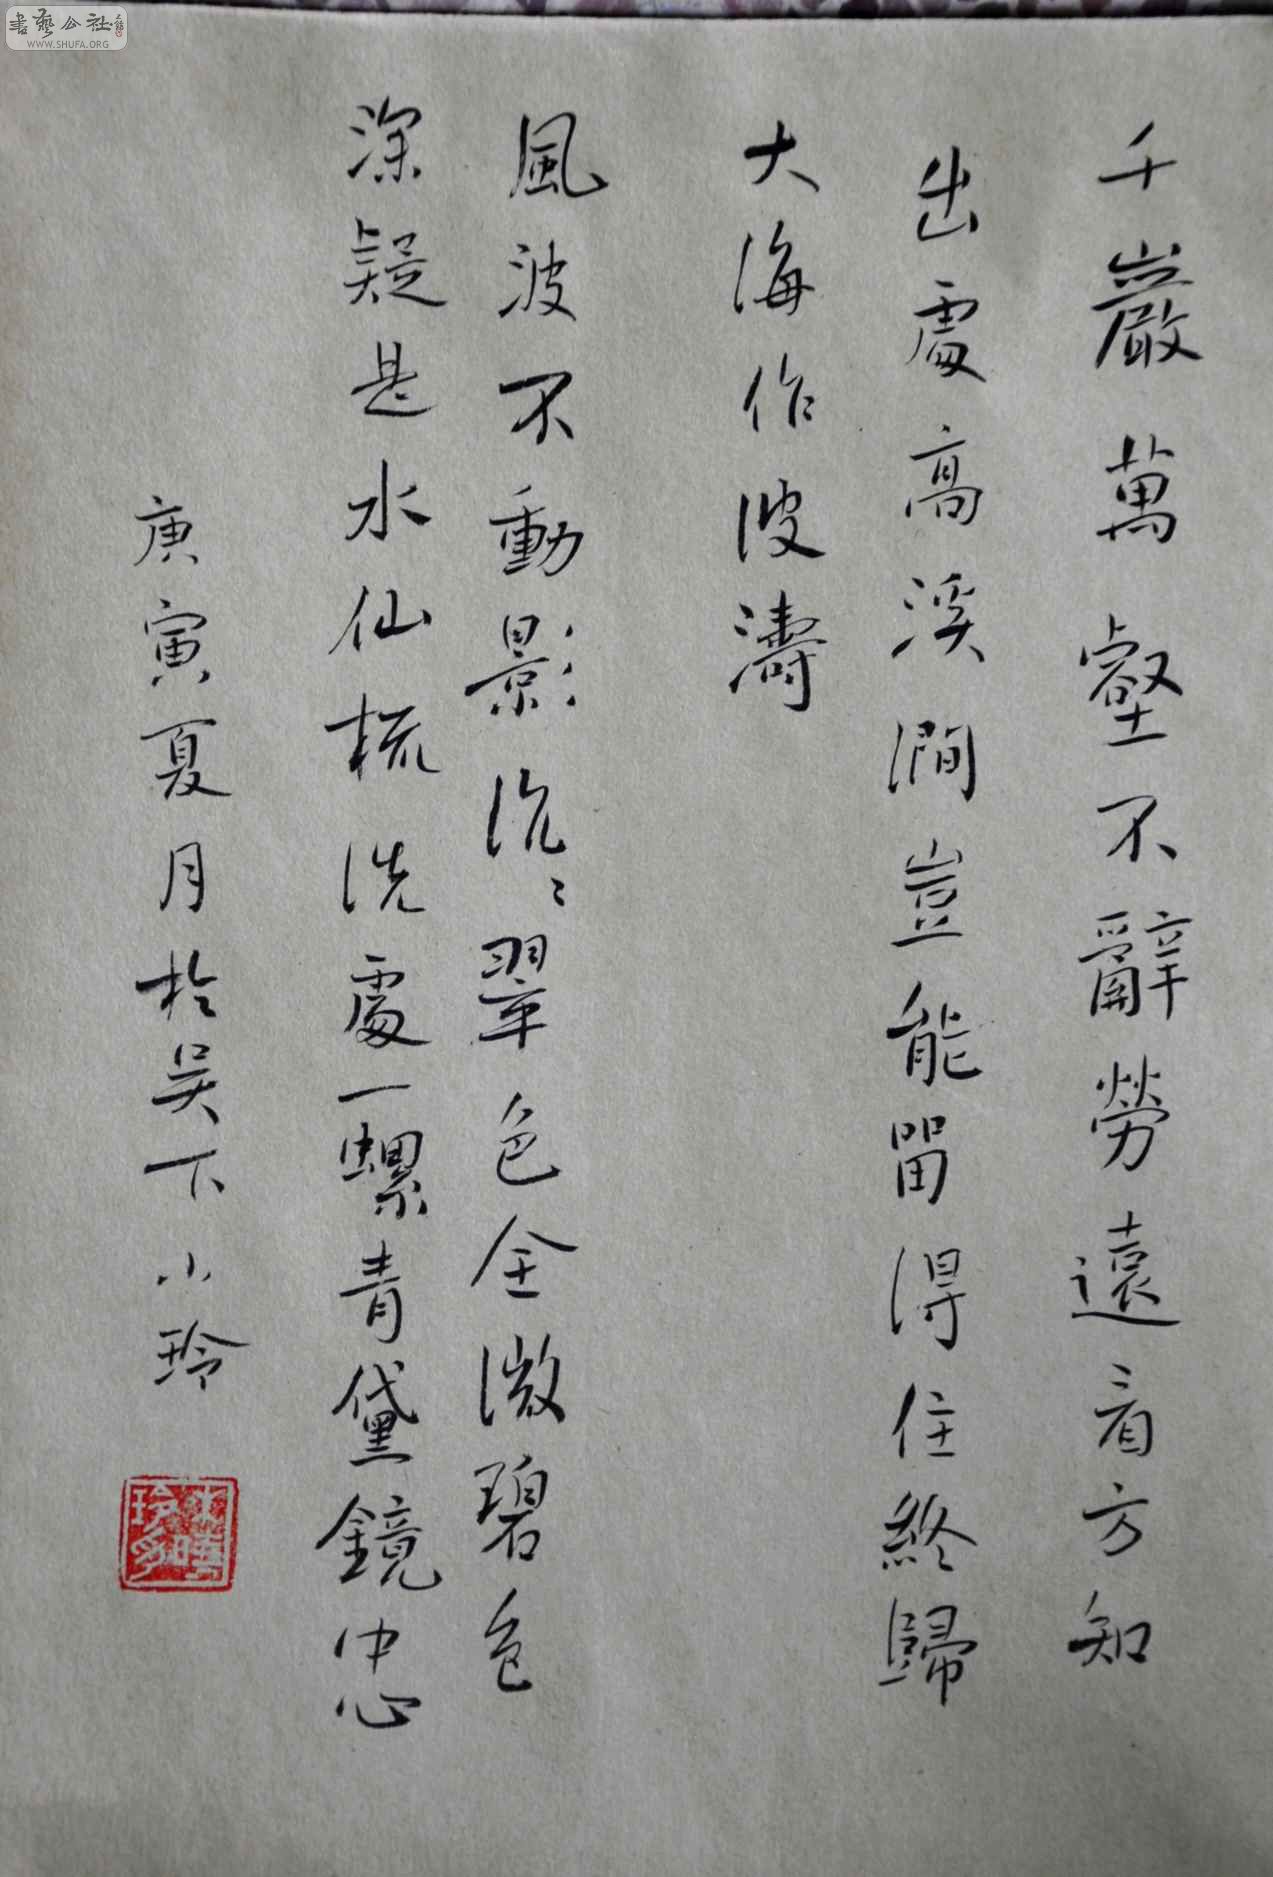 千巖萬壑不辭勞遠看方知
出處高溪澗豈能留得住終歸
大海作波濤
風波不動影沉〻翠色全微碧色
深疑是水仙梳洗處一螺青黛鏡中心
庚寅夏月於吳下小玲
書藝公社
WWW.SHUFA.ORG